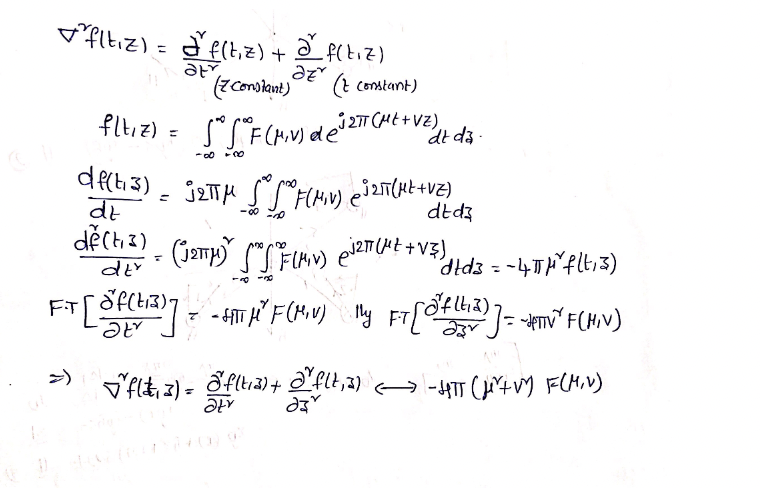 ∇²f(t,z) = ∂²f(t,z)/∂t² + ∂²f(t,z)/∂z²
(z constant) (t constant)
f(t,z) = ∫_{-∞}^{∞} ∫_{-∞}^{∞} F(μ,ν) de^{j2π(μt+νz)} dt dz.
df(t,z)/dt = j2πμ ∫_{-∞}^{∞} ∫_{-∞}^{∞} F(μ,ν) e^{j2π(μt+νz)} dt dz
d²f(t,z)/dt² = (j2πμ)² ∫_{-∞}^{∞} ∫_{-∞}^{∞} F(μ,ν) e^{j2π(μt+νz)} dt dz = -4πμ²f(t,z)
F.T[∂²f(t,z)/∂t²] = -4πμ² F(μ,ν) lly F.T[∂²f(t,z)/∂z²] = -4πν² F(μ,ν)
⇒) ∇²f(t,z) = ∂²f(t,z)/∂t² + ∂²f(t,z)/∂z² ⟷ -4π(μ²+ν²) F(μ,ν)